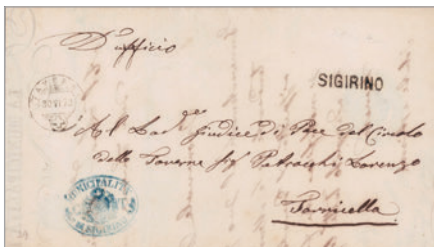 D'ufficio
SIGIRINO
Al Lod.e Giudice di Pace del Circolo
delle Taverne sig Petrocchi Lorenzo
Torricella
MUNICIPALITÀ
DI SIGIRINO